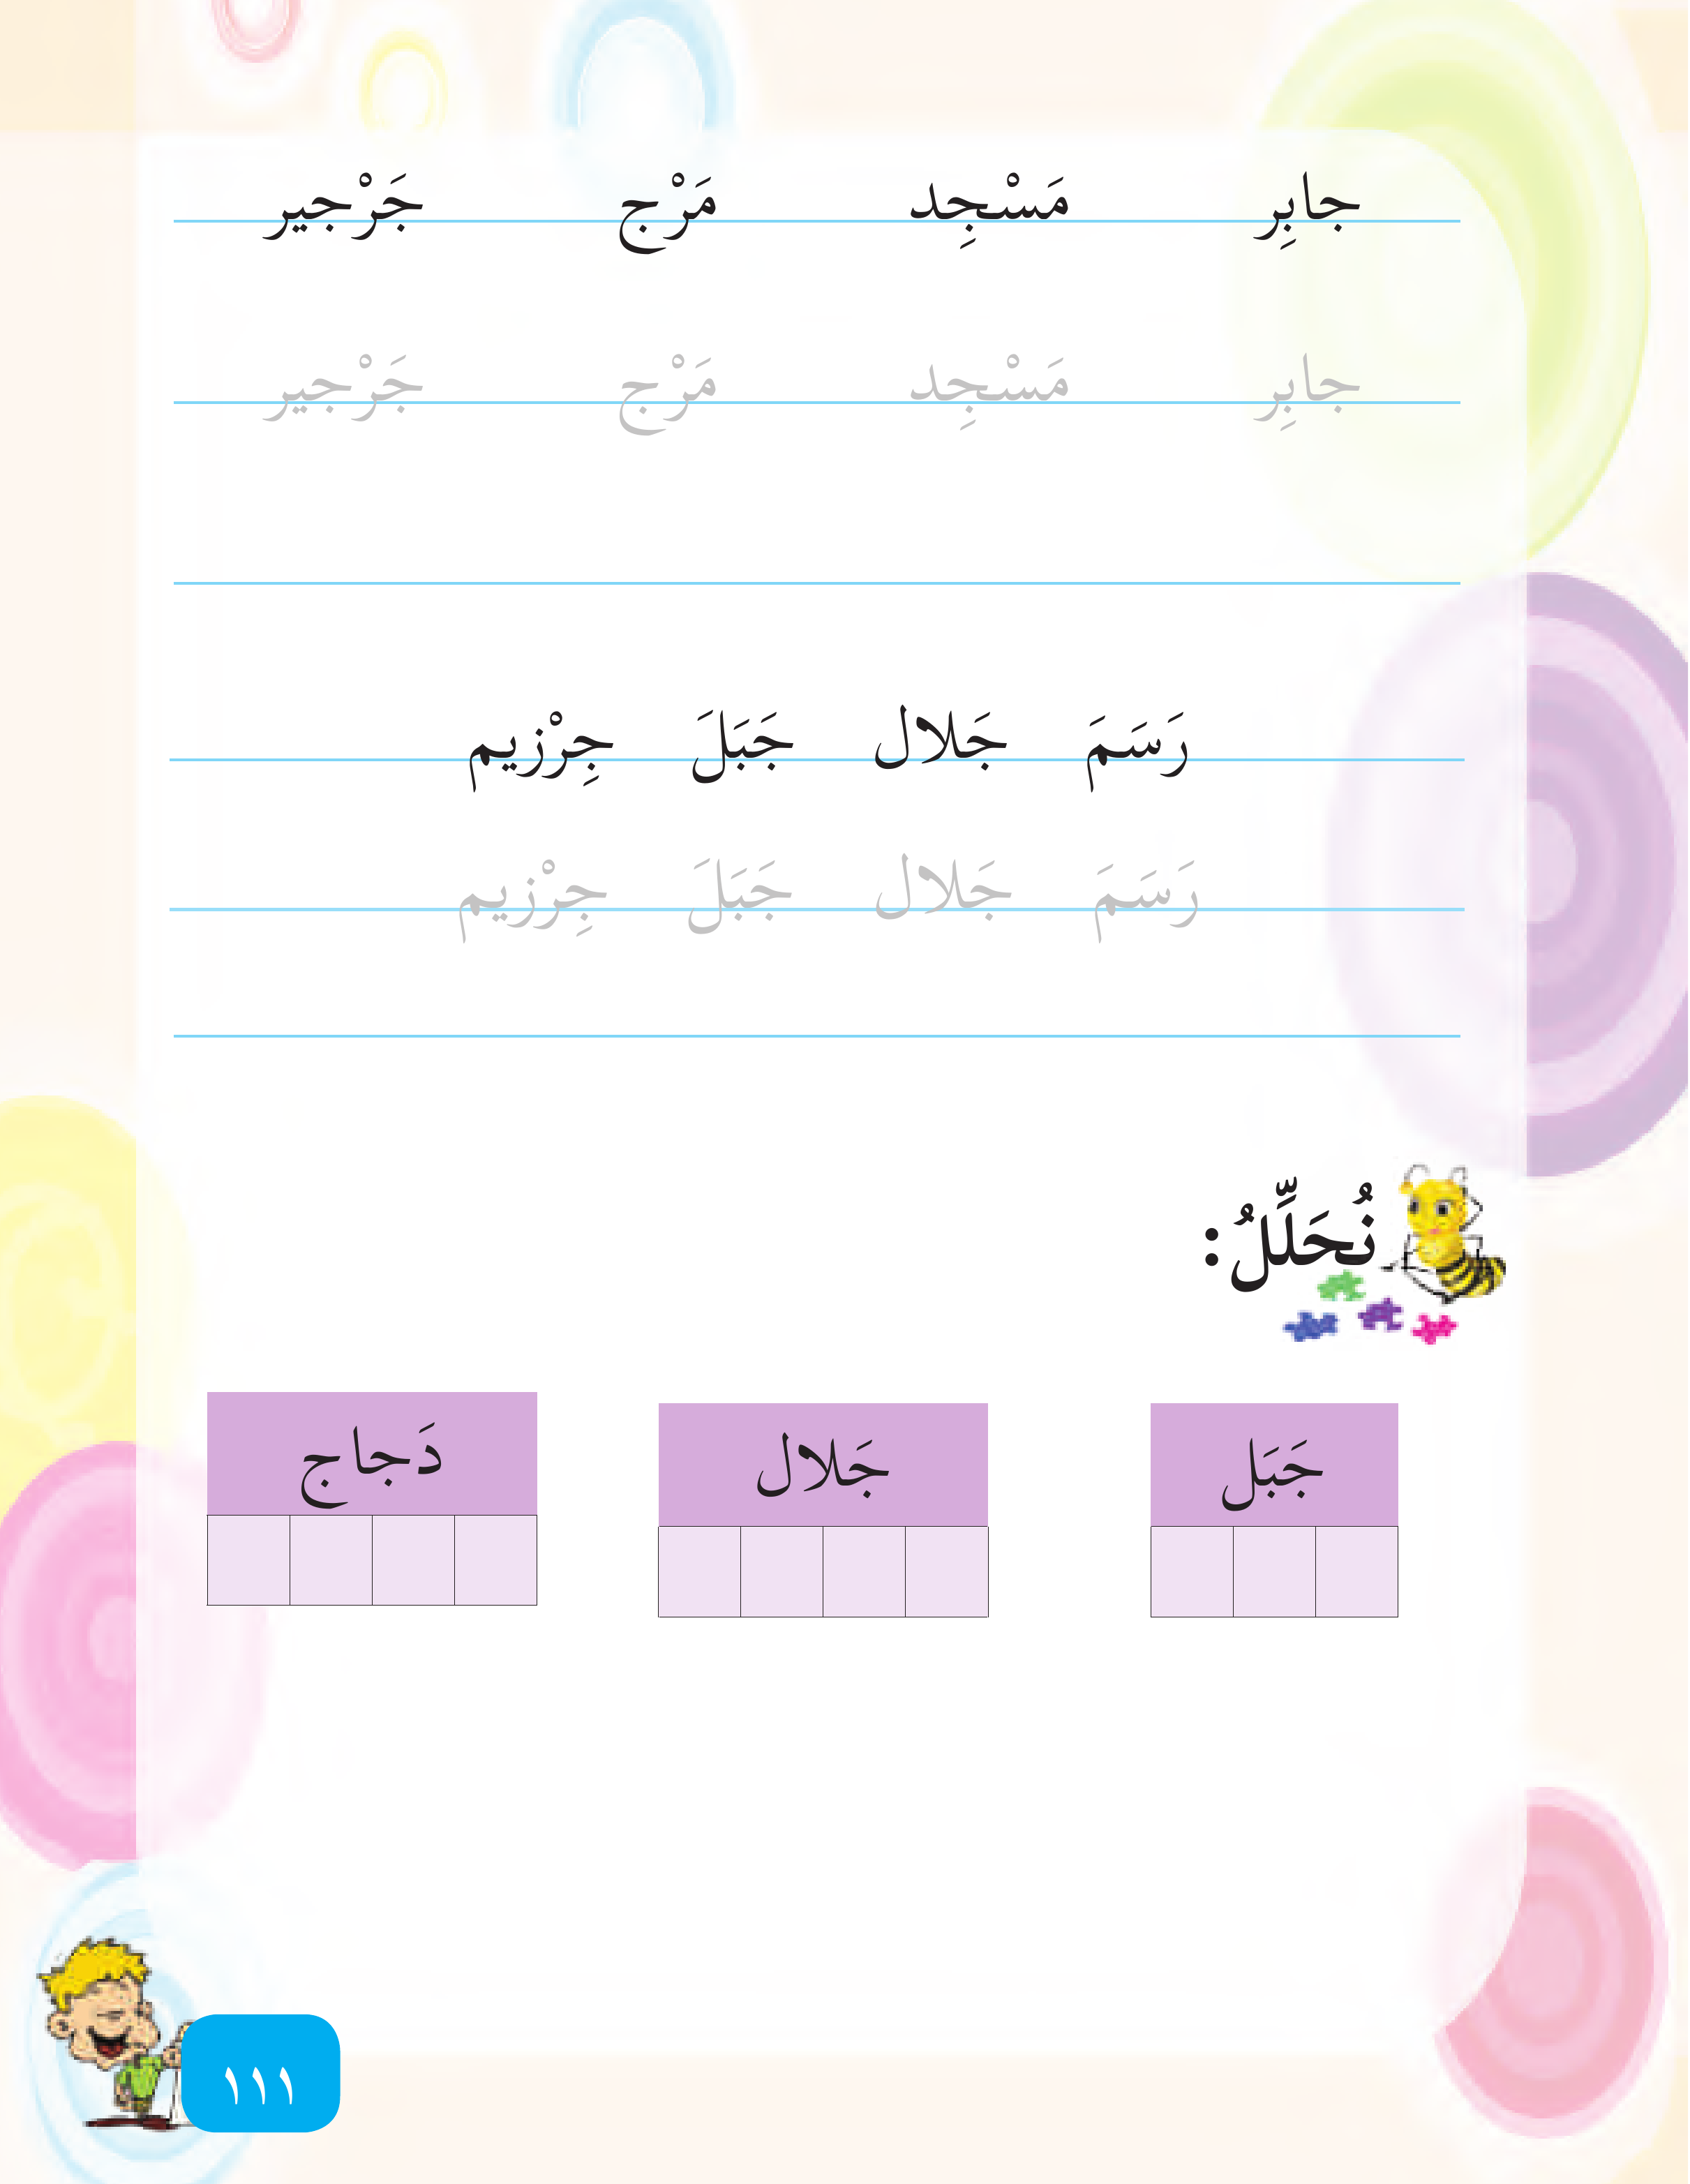 جابِر مَسْجِد مَرْج جَرْجير
جابِر مَسْجِد مَرْج جَرْجير
رَسَمَ جَلال جَبَلَ جِرْزيم
رَسَمَ جَلال جَبَلَ جِرْزيم
نُحَلِّلُ:
جَبَل جَلال دَجاج
١١١